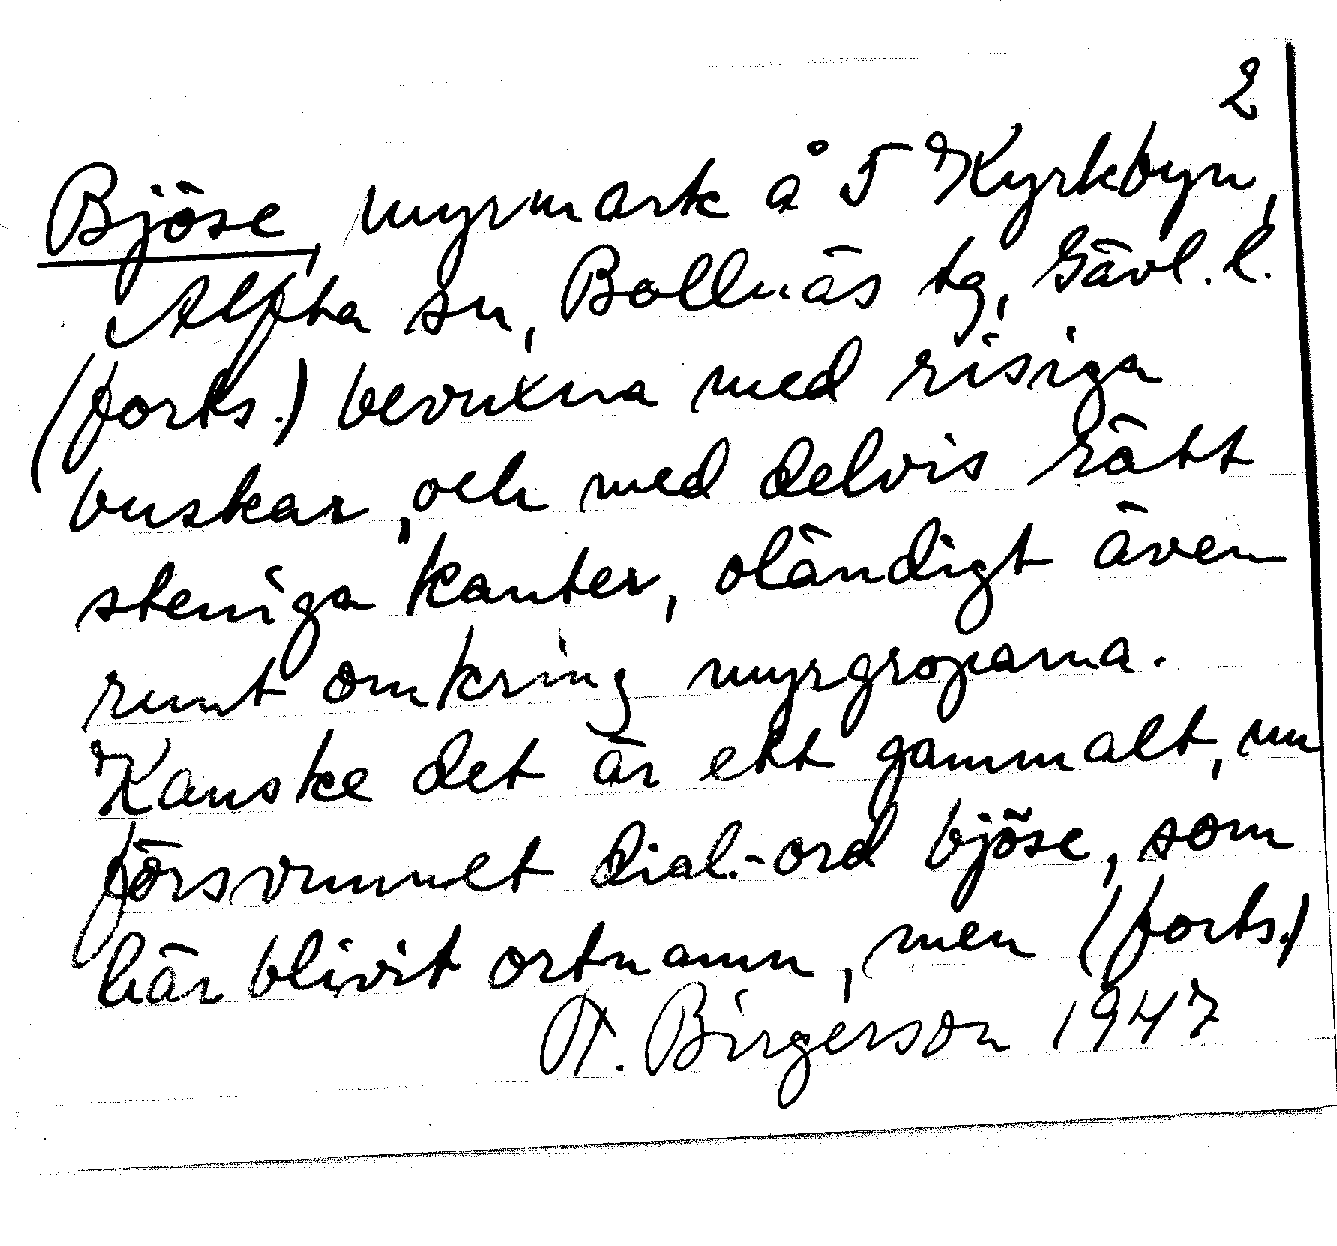 2
Bjöse, myrmark å 5 Kyrkbyn,
Alfta sn, Bollnäs tg, Gävl. l.
(forts.) bevuxna med risiga
buskar, och med delvis rätt
steniga kanter, oländigt även
runt omkring myrgroparna.
Kanske det är ett gammalt, nu
försvunnet dial.-ord bjöse, som
här blivit ortnamn, men (forts.)
A. Birgerson 1947